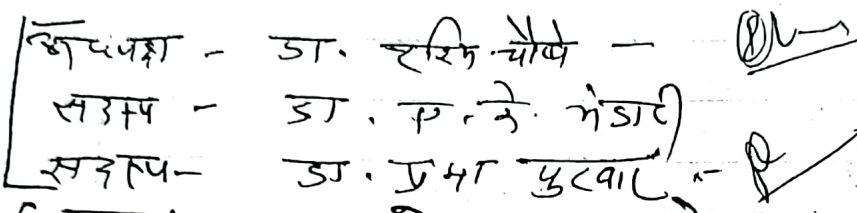 अध्यक्ष - डा. रश्मि चौबे -
सदस्य - डा. ए. के. भंडारी
सदस्य - डा. प्रभा पुरवार -